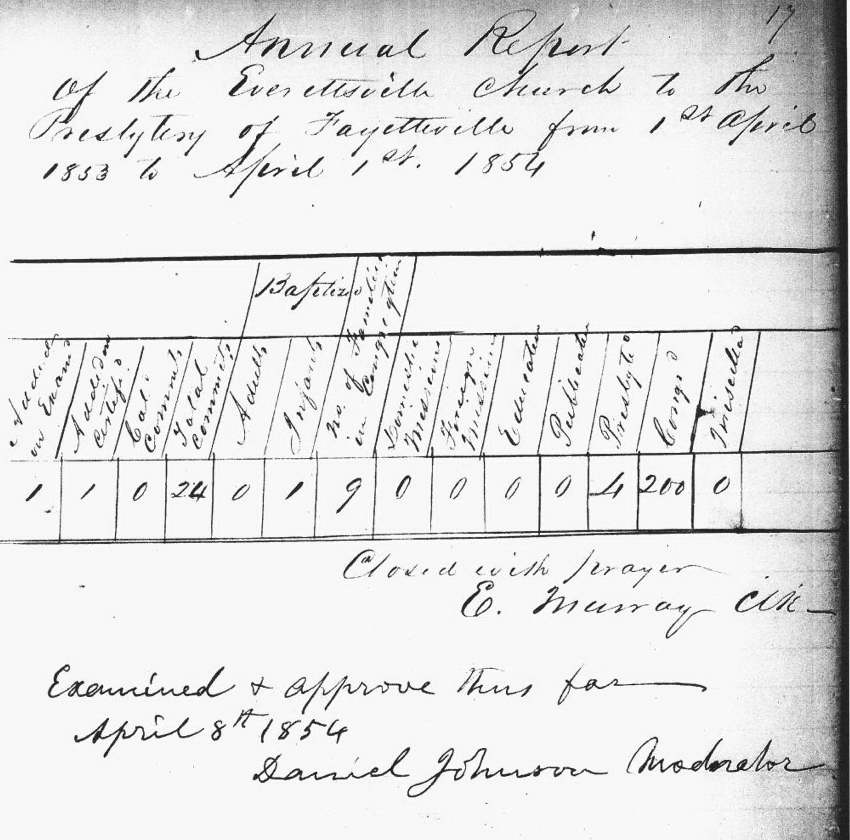 17
Annual Report
Of the Everettsville Church to the
Presbytery of Fayetteville from 1st April
1853 to April 1st. 1854
Baptized
No. of Families in Congregation
Added on Exam
Added on Certific
Col. Commts
Total Commts
Adults
Infants
Domestic Missions
Foreign Missions
Education
Publication
Presbyte
Cong'l
Miscella
1 1 0 24 0 1 9 0 0 0 0 4 200 0
Closed with prayer
E. Murray Clk
Examined & approve thus far
April 8th 1854
Daniel Johnson Moderator